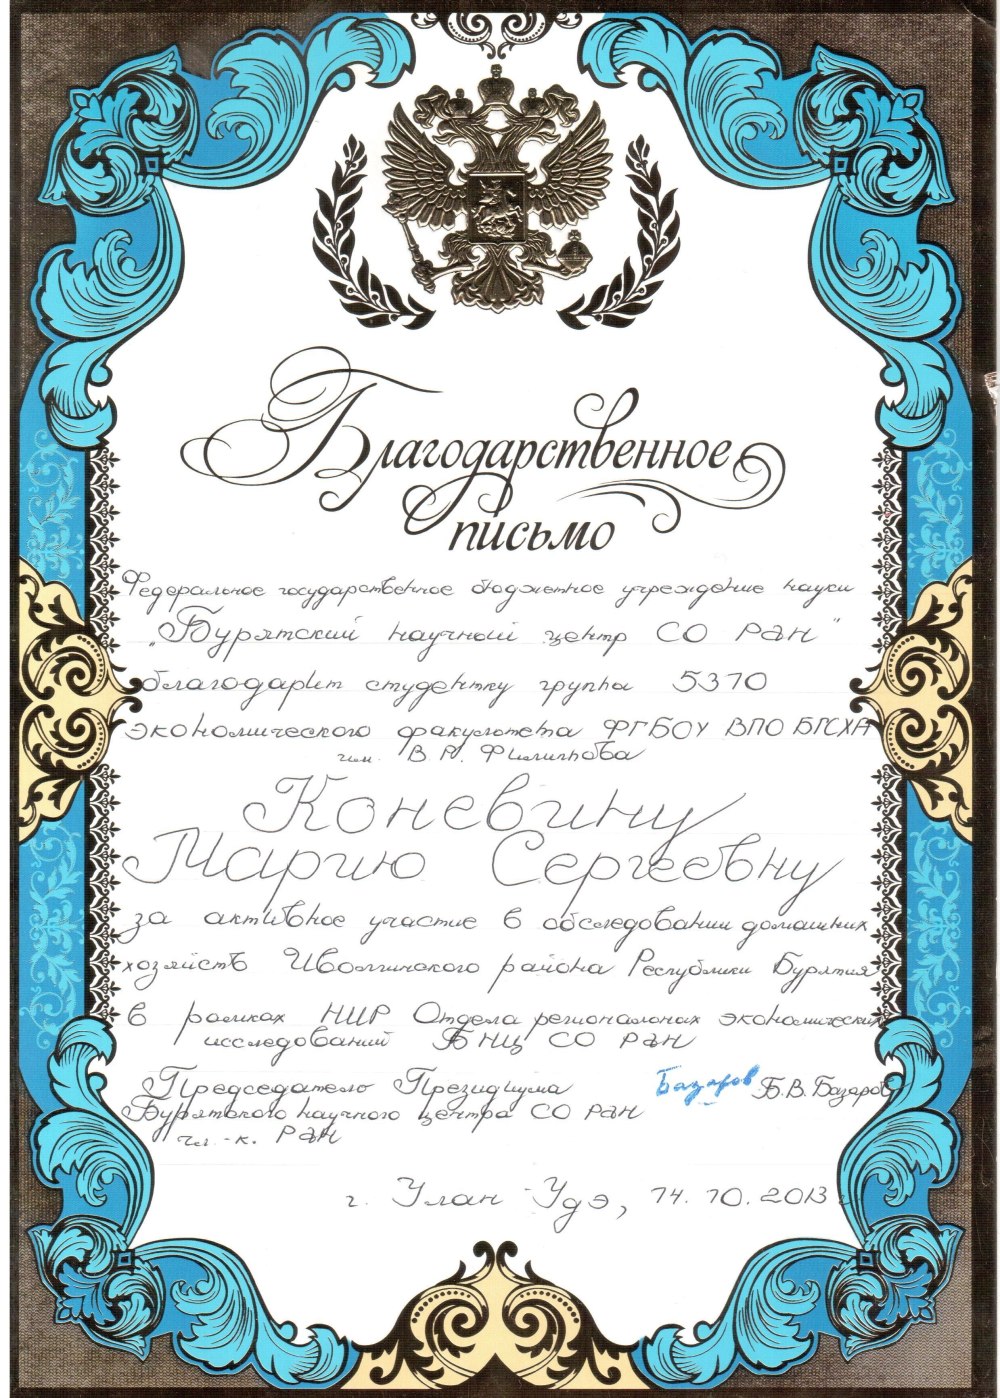 Благодарственное
письмо
Федеральное государственное бюджетное учреждение науки
"Бурятский научный центр СО РАН"
благодарит студентку группы 5310
экономического факультета ФГБОУ ВПО БГСХА
им. В.Р. Филиппова
Коневину
Марию Сергеевну
за активное участие в обследовании домашних
хозяйств Иволгинского района Республики Бурятия
в рамках НИР Отдела региональных экономических
исследований БНЦ СО РАН
Председатель Президиума Базаров Б.В. Базаров
Бурятского научного центра СО РАН
чл.-к. РАН
г. Улан-Удэ, 14.10.2013 г.